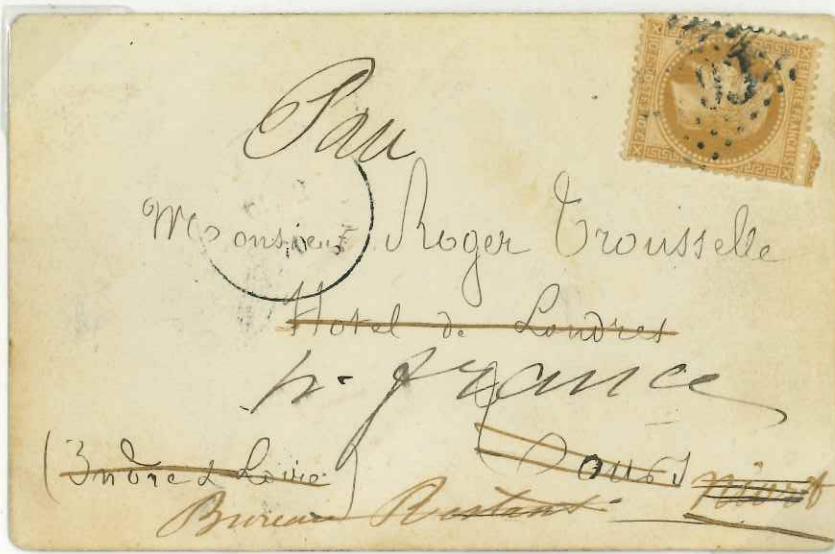 Pau
Monsieur Roger Trousselle
Hotel de Londres
h. france
Tours
(Indre & Loire)
Bureau Restant Niort